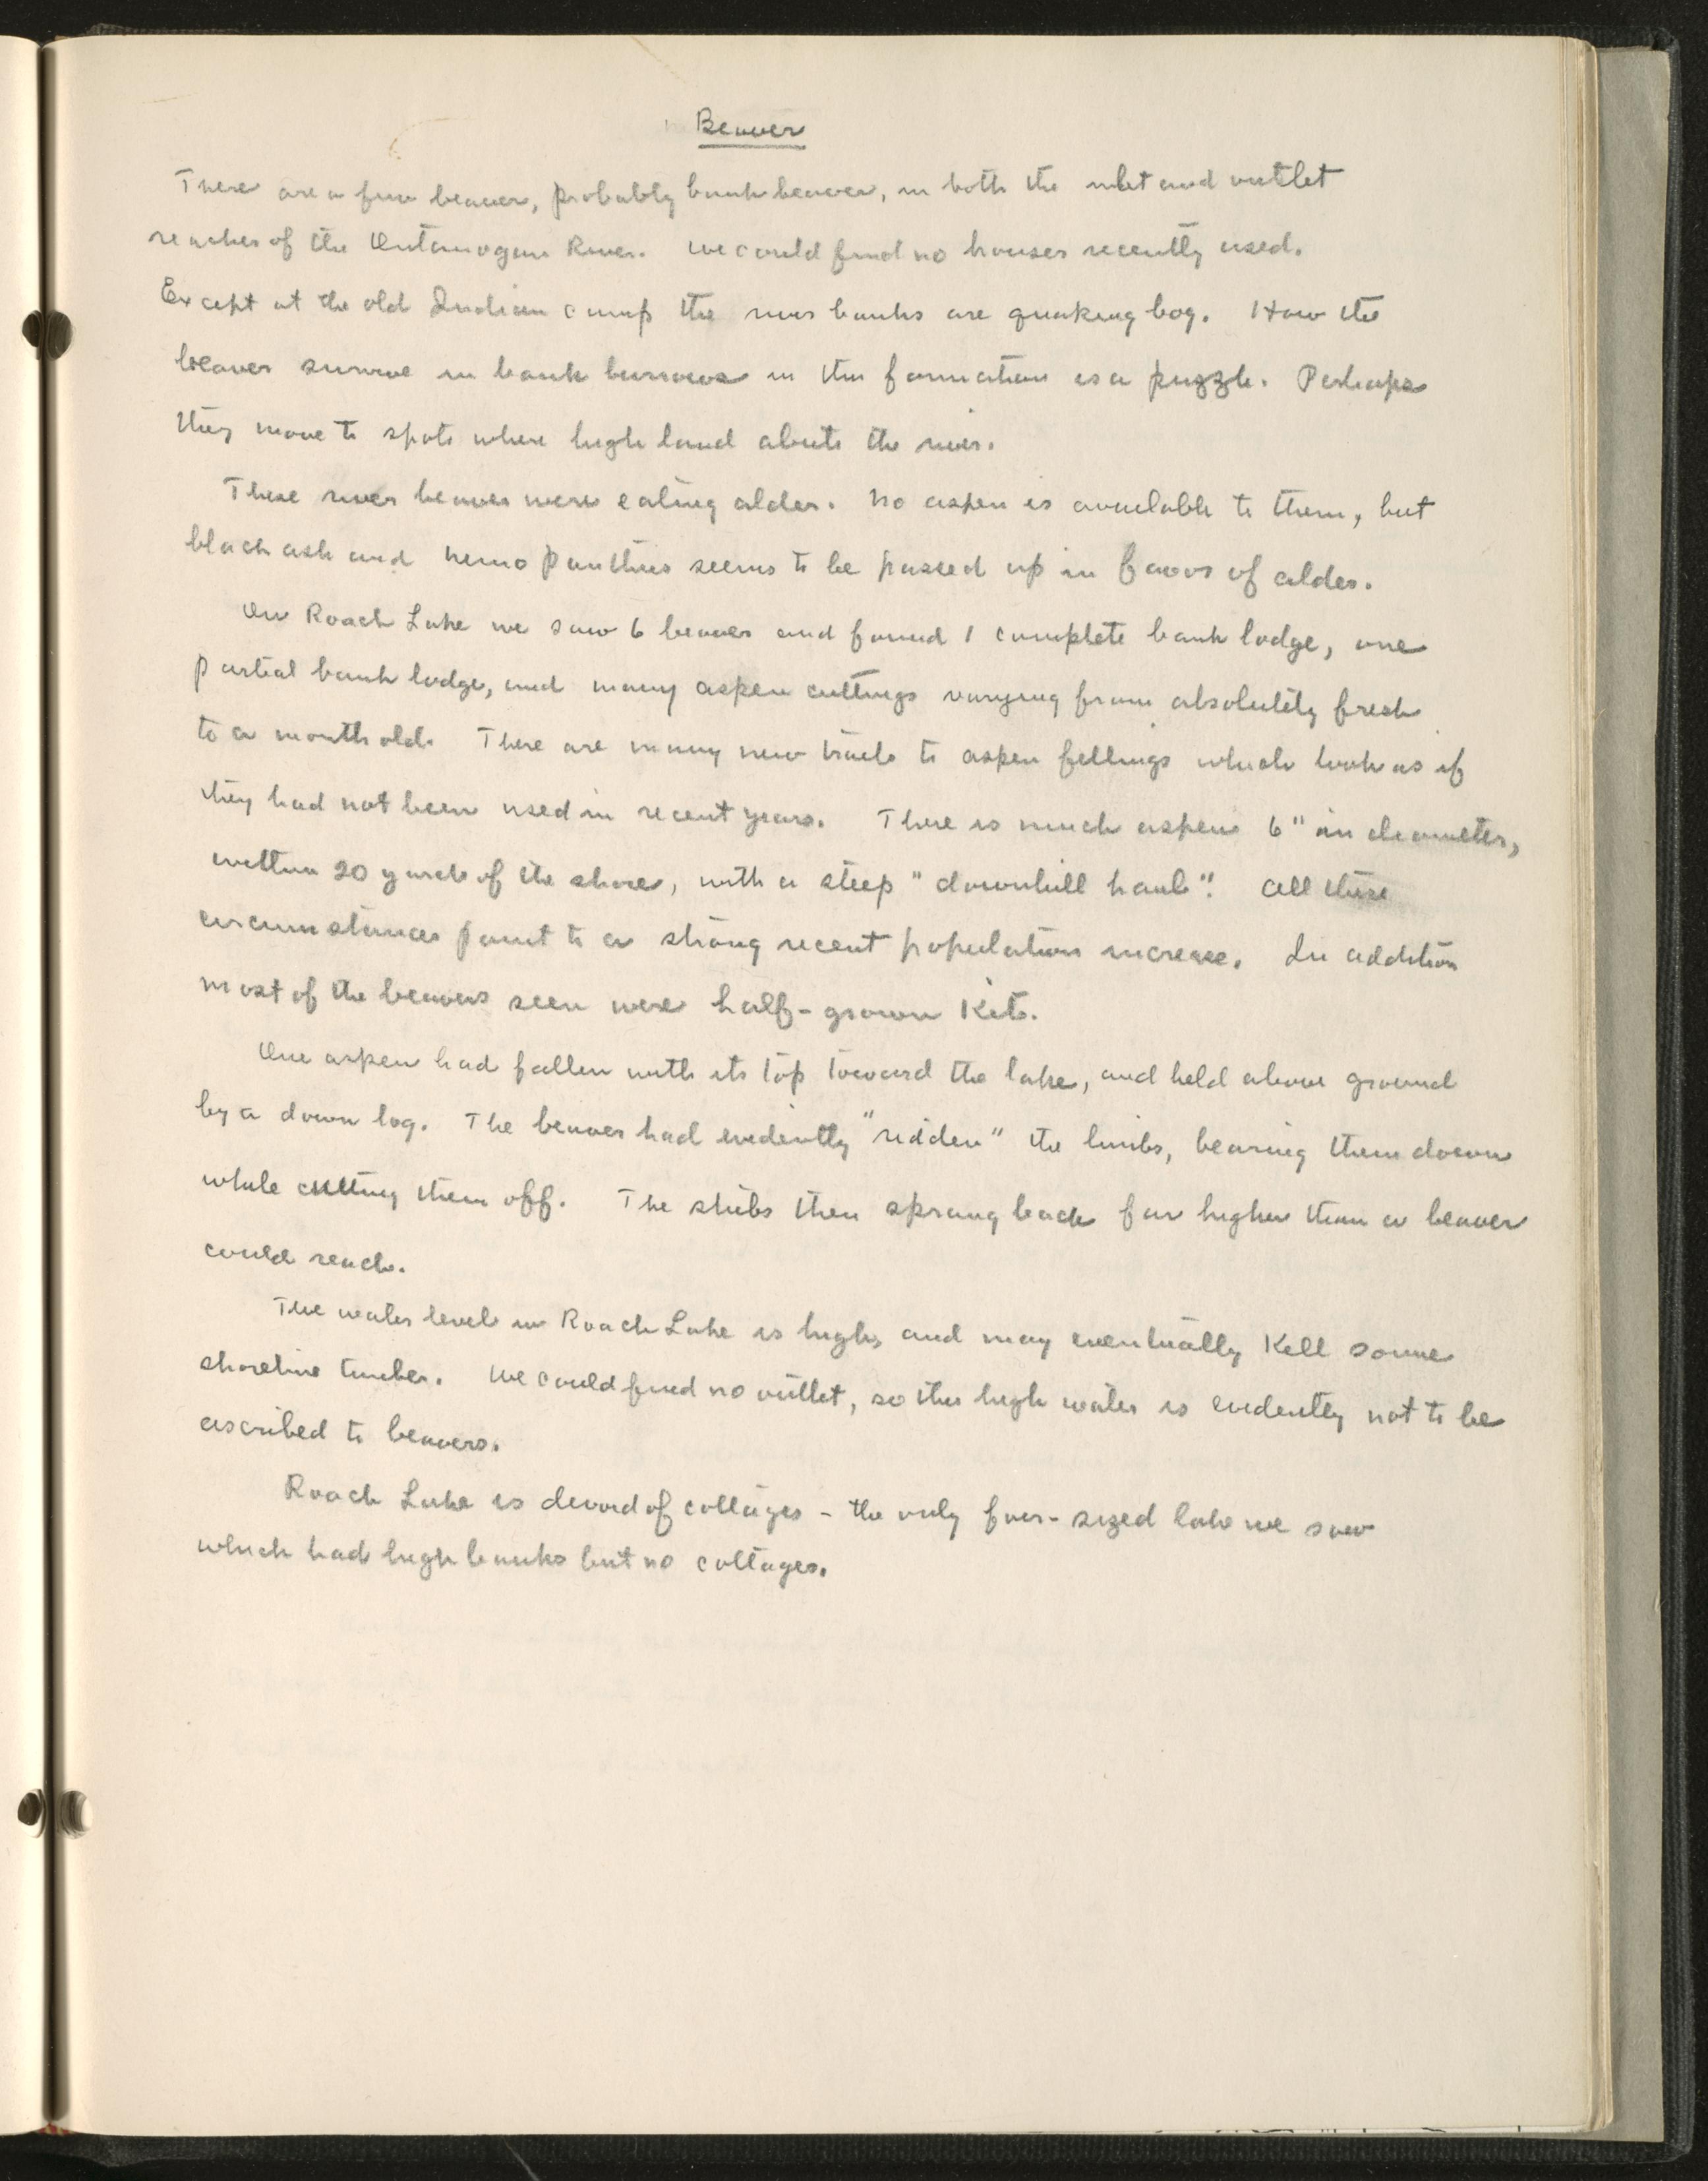 Beaver
There are a few beaver, probably bank beaver, in both the inlet and outlet
reaches of the Ontonogon River. We could find no houses recently used.
Except at the old Indian camp the river banks are quaking bog. How the
beaver survive in bank burrows in this formation is a puzzle. Perhaps
they move to spots where high land abuts the river.
These river beaver were eating alder. No aspen is available to them, but
black ash and nemopanthus seems to be passed up in favor of alder.
On Roach Lake we saw 6 beaver and found 1 complete bank lodge, one
partial bank lodge, and many aspen cuttings varying from absolutely fresh
to a month old. There are many new trails to aspen fellings which look as if
they had not been used in recent years. There is much aspen 6" in diameter,
within 20 yards of the shore, with a steep "downhill haul". All these
circumstances point to a strong recent population increase. In addition
most of the beavers seen were half-grown kits.
One aspen had fallen with its top toward the lake, and held above ground
by a down log. The beaver had evidently "ridden" the limbs, bearing them down
while cutting them off. The stubs then sprang back far higher than a beaver
could reach.
The water level in Roach Lake is high, and may eventually kill some
shoreline timber. We could find no outlet, so this high water is evidently not to be
ascribed to beavers.
Roach Lake is devoid of cottages - the only fair-sized lake we saw
which had high banks but no cottages.